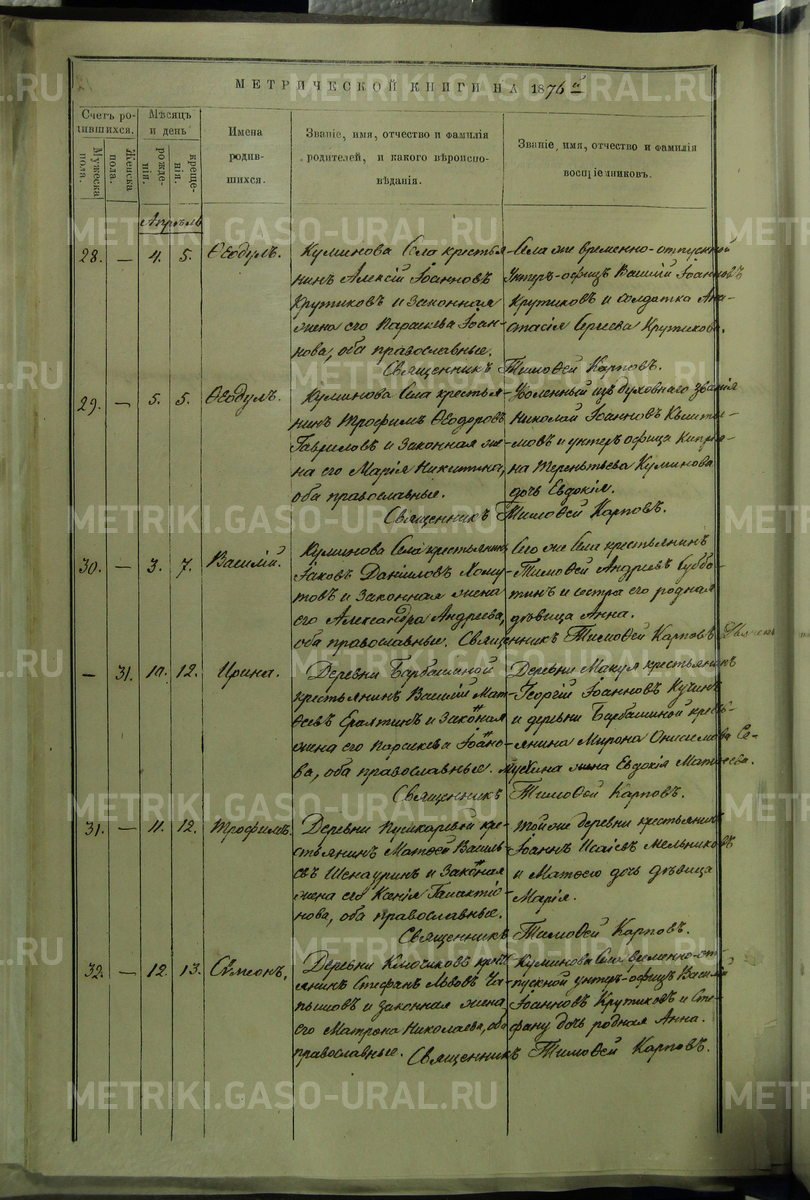 МЕТРИЧЕСКОЙ КНИГИ НА 1876 й
Счетъ родившихся.
Мужеска пола.
Женска пола.
Мѣсяцъ и день
рожденія.
крещенія.
Имена родившихся.
Званіе, имя, отчество и фамилія родителей, и какого вѣроисповѣданія.
Званіе, имя, отчество и фамилія воспріемниковъ.
Апрѣль
28. — 4. 5. Ѳеодулъ.
Куминова Села крестья-
нинъ Алексій Іоанновъ
Крутиковъ и законная
жена его Параскева Іоан-
нова, оба православные.
Села же временно-отпускной
Унтеръ-офиц. Василій Іоанновъ
Крутиковъ и солдатка Ана-
стасія Сергеева Крутикова.
Священникъ Тимоѳей Карповъ.
29. — 5. 5. Ѳеодулъ.
Куминова Села крестья-
нинъ Трофимъ Ѳеодоровъ
Гавриловъ и законная же-
на его Марія Никитина,
оба православные.
Уволенный изъ духовнаго званія
Николай Іоанновъ
и унтеръ офица Кипріа-
на Терентьева Куминова
дочь Евдокія.
Священникъ Тимоѳей Карповъ.
30. — 3. 7. Василій.
Куминова Села крестьянинъ
Іаковъ Даніиловъ Хому-
товъ и законная жена
его Александра Андреева,
оба православные.
Сего же Села крестьянинъ
Тимоѳей Андреевъ Суббо-
тинъ и сестра его родная
дѣвица Анна.
Священникъ Тимоѳей Карповъ
— 31. 10. 12. Ирина.
Деревни Барбашиной
крестьянинъ Василій Мат-
ѳеевъ и законная
жена его Параскева Іоанно-
ва, оба православные.
Деревни Макуя крестьянинъ
Георгій Іоанновъ Кучинъ
и деревни Барбашиной кресть-
янина Мирона Онисимова
жена Евдокія Матѳеева.
Священникъ Тимоѳей Карповъ.
31. — 11. 12. Трофимъ.
Деревни Пушкаревой кре-
стьянинъ Матѳей Василь-
евъ Шенауринъ и законная
жена его Ксенія Галактіо-
нова, оба православные.
Той же деревни крестьянинъ
Іоаннъ Исаіевъ Мельниковъ
и Матѳея дочь дѣвица
Марія.
Священникъ Тимоѳей Карповъ.
32. — 12. 13. Сѵмеонъ.
Деревни Ключиковъ крест-
янинъ Стефанъ Львовъ Ча-
пышовъ и законная жена
его Матрона Николаева, оба
православные.
Куминова Села временно-от-
пускной унтеръ-офиц. Василій
Іоанновъ Крутиковъ и Сте-
фану дочь родная Анна.
Священникъ Тимоѳей Карповъ.
METRIKI.GASO-URAL.RU